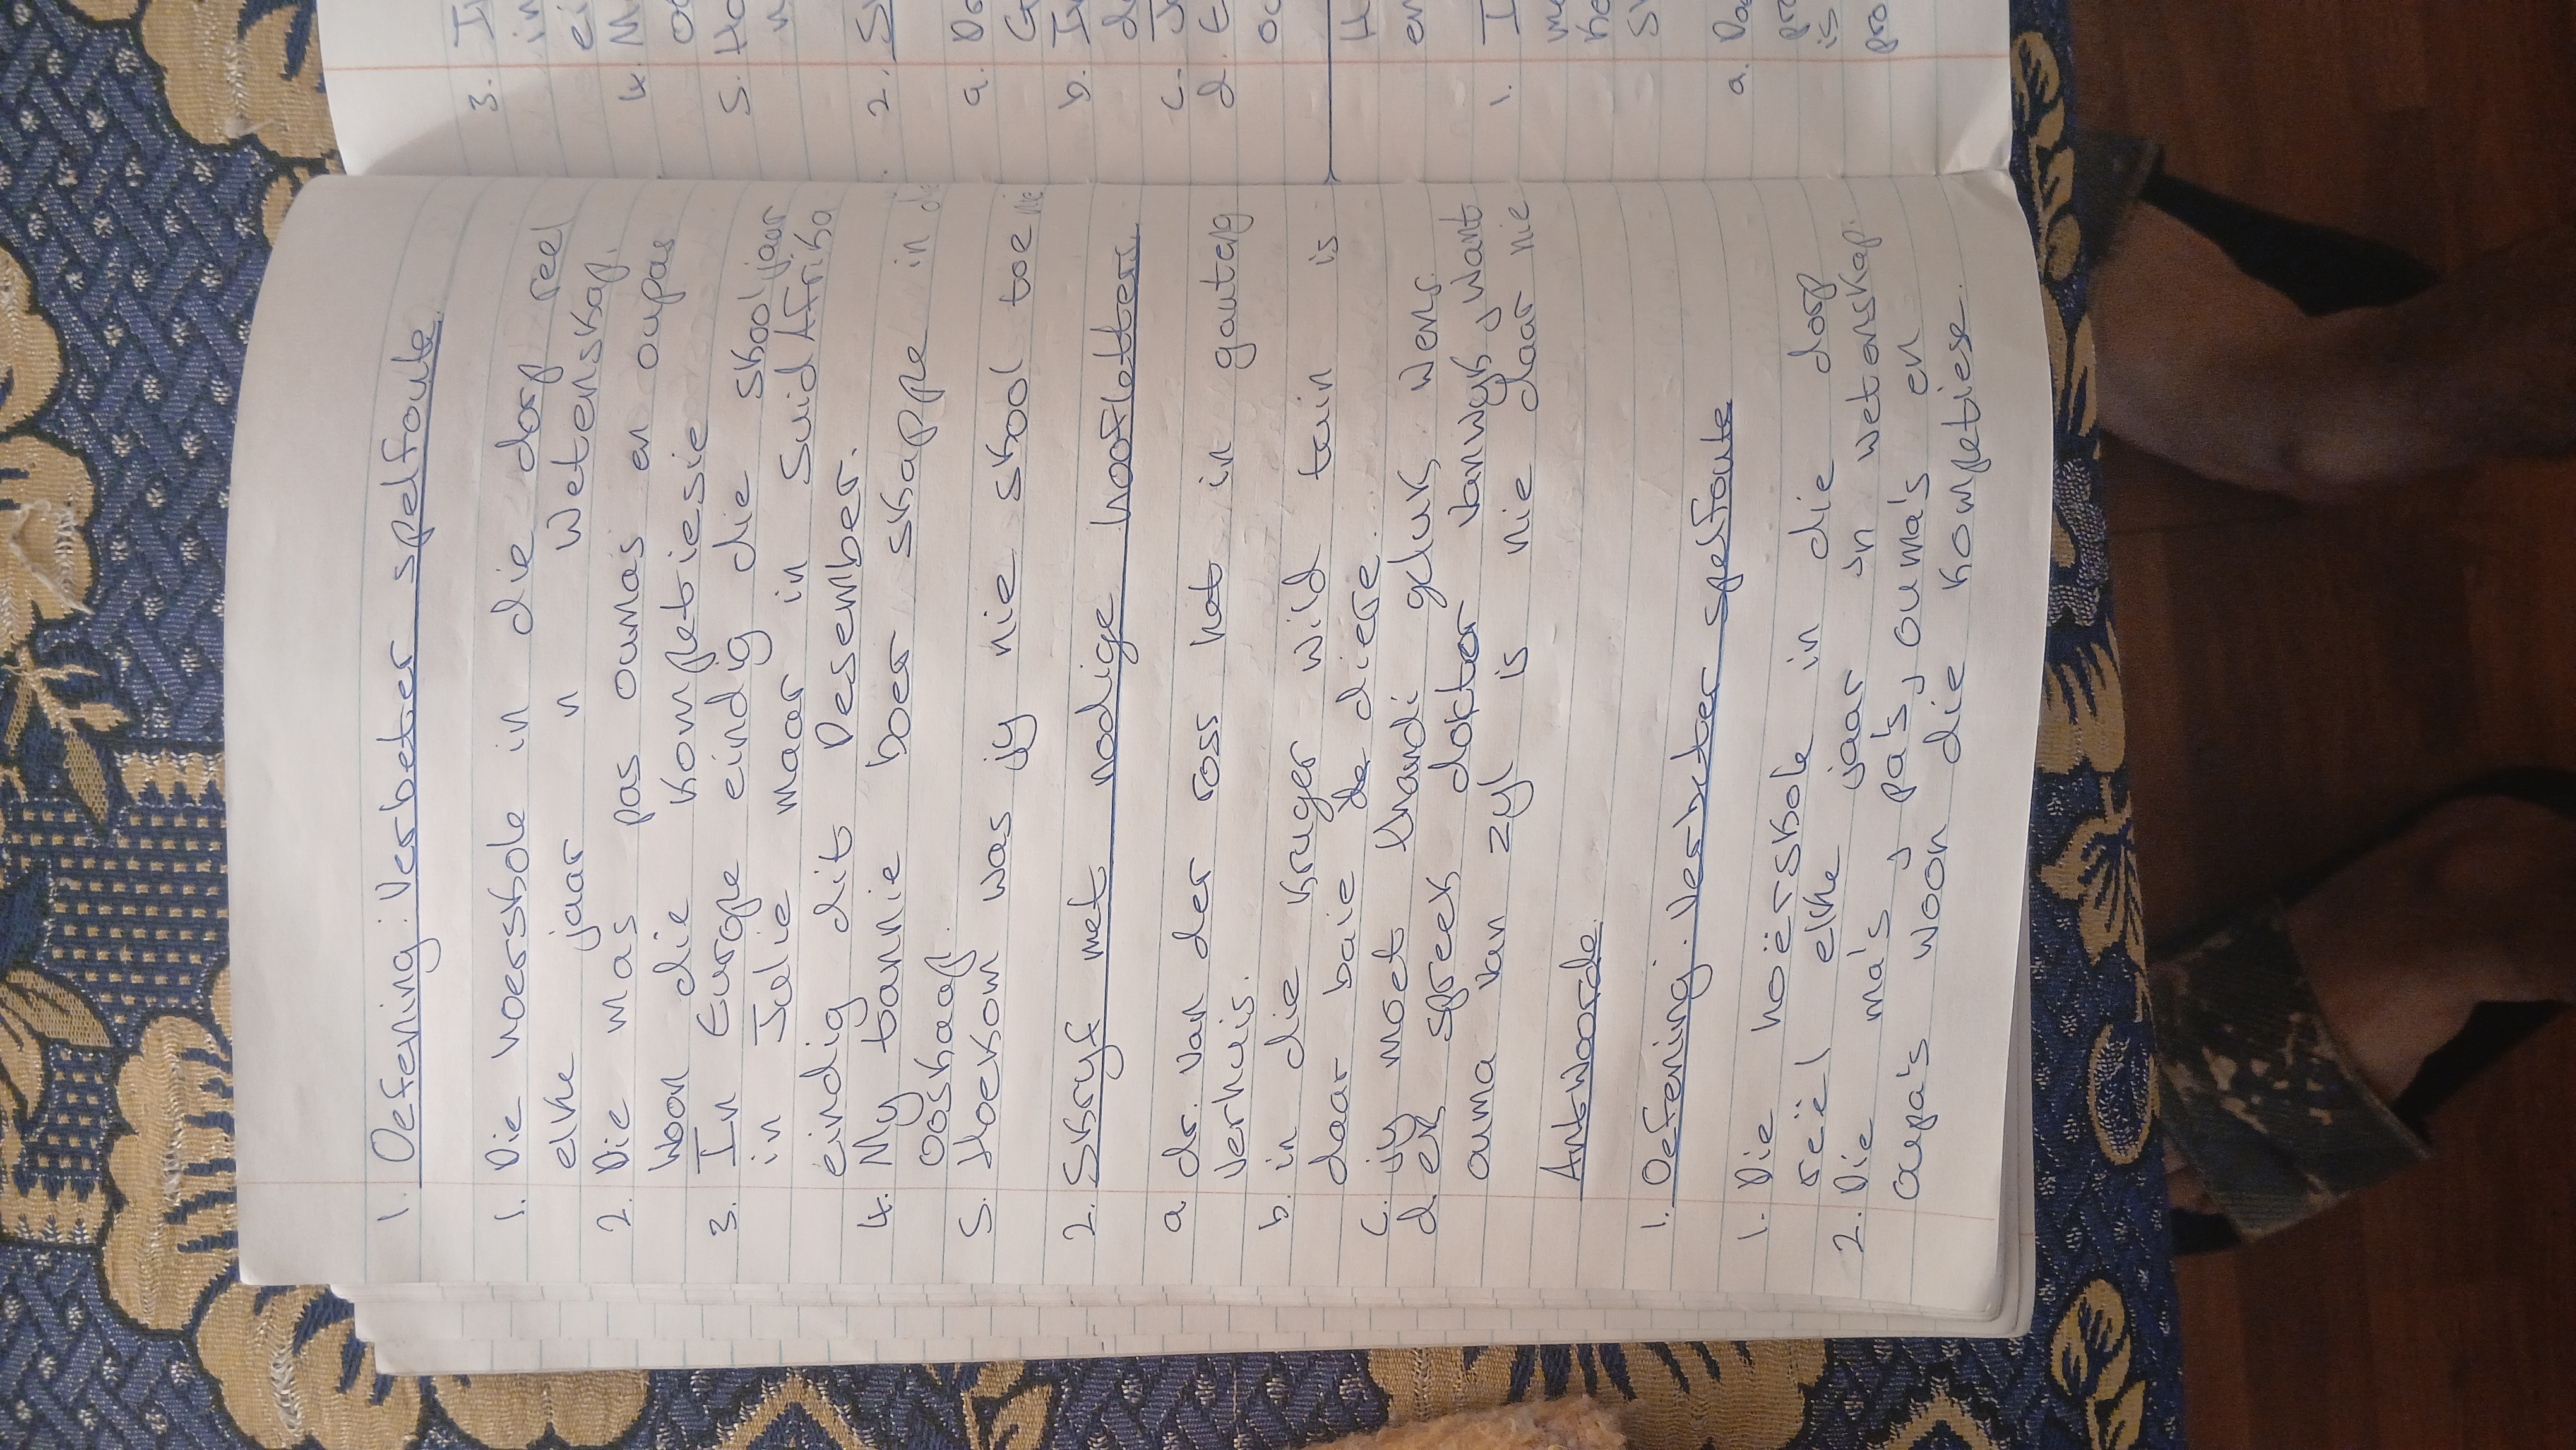 1. Oefening: Verbeter spelfoute.
1. Die hoerskole in die dorp reel
elke jaar n wetenskap.
2. Die mas pas oumas en oupas
woon die kompetiesie
3. In Europe eindig die skooljaar
in Julie maar in Suid Afrika
eindig dit Desember.
4. My tannie boer skappe in die
ooskaap.
5. Hoekom was jy nie skool toe nie
2. Skryf met nodige hoofletters.
a. dr. van der ross het in gauteng
verhuis.
b. in die kruger wild tuin is
daar baie de diere.
c. jy moet brandi geluk wens.
d. ek spreek doktor vanwyk, want
ouma van zyl is nie daar nie
Antwoorde.
1. Oefening: Verbeter spelfoute
1. Die hoërskole in die dorp
reël elke jaar 'n wetenskap.
2. Die ma's, pa's, ouma's en
oupa's woon die kompetiese.
3. I
in
ei
4. M
oo
5. Ho
n
2. S
a. D
G
b. I
d
c. J
d. E
oo
H
en
1. I
me
ko
a. Da
pr
is
pro